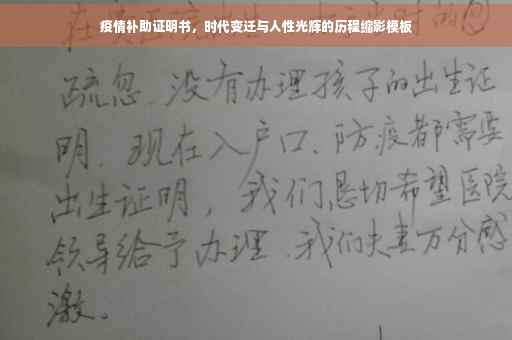 疫情补助证明书，时代变迁与人性光辉的历程缩影模板
疏忽、没有办理孩子的出生证
明、现在入户口、防疫都需要
出生证明，我们恳切希望医院
领导给予办理、我们夫妻万分感
激。